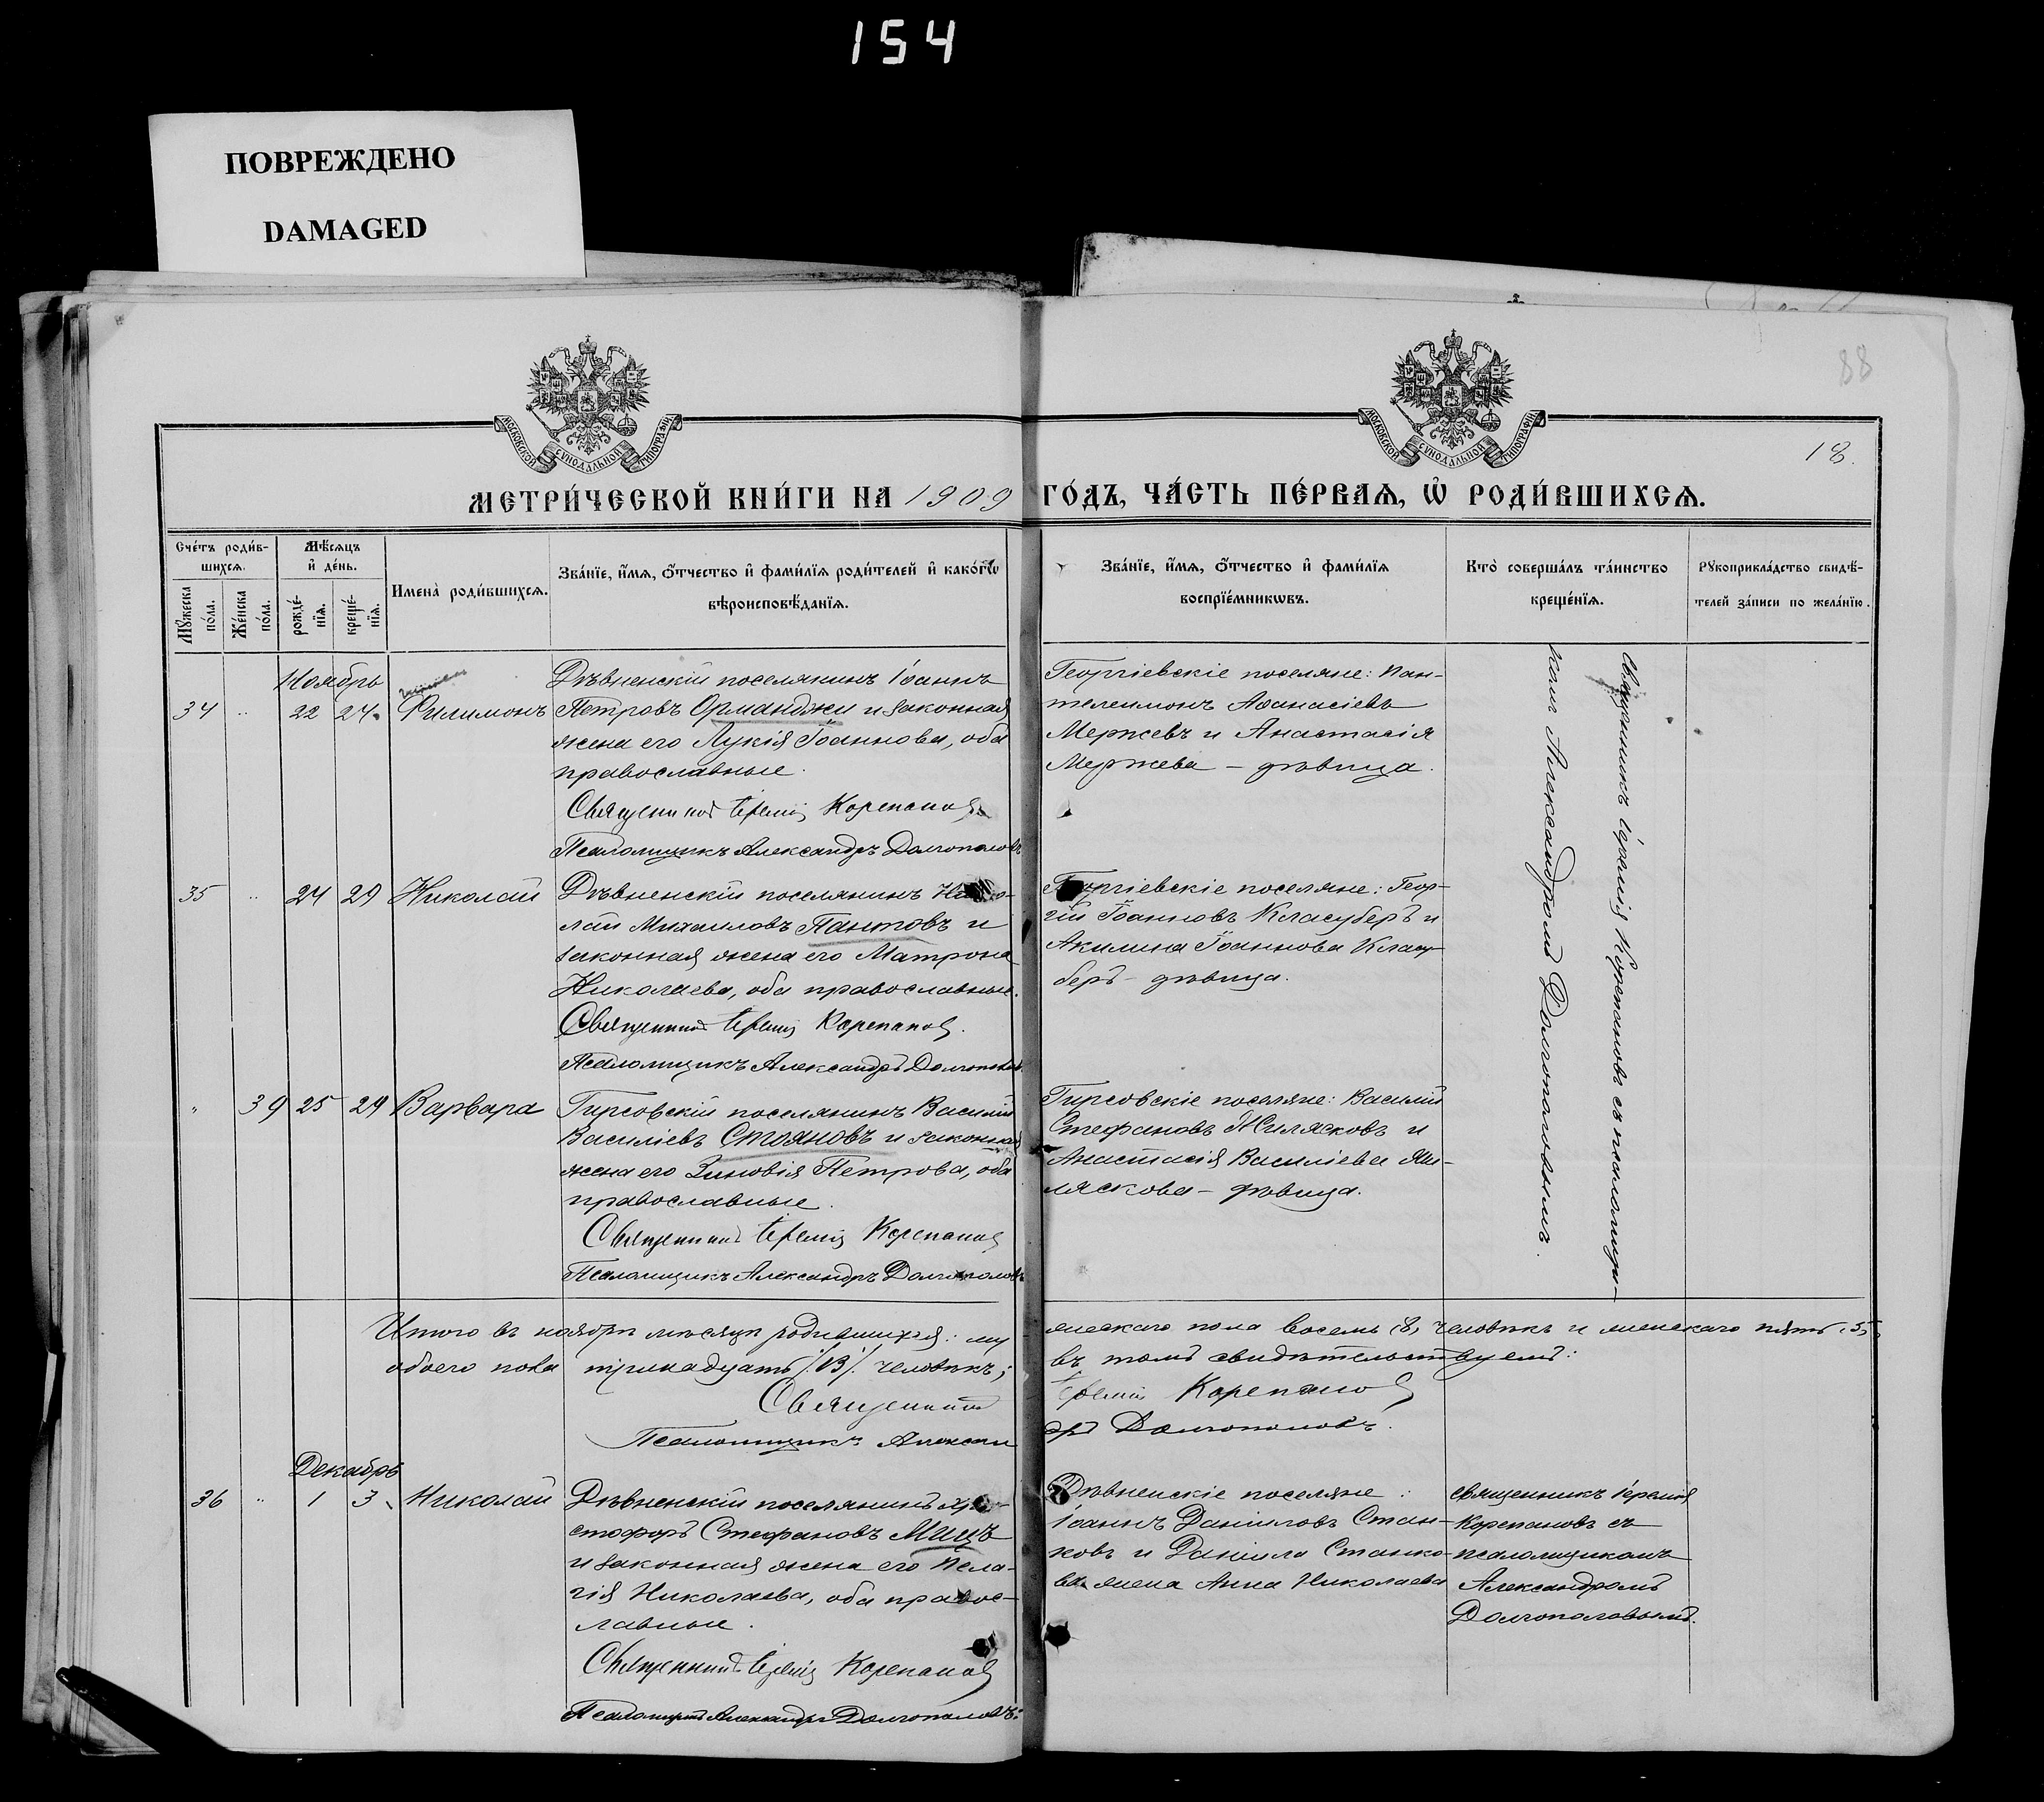 154
ПОВРЕЖДЕНО
DAMAGED
88
18.
МОСКОВСКОЙ СѴНОДАЛЬНОЙ ТИПОГРАФІИ
МОСКОВСКОЙ СѴНОДАЛЬНОЙ ТИПОГРАФІИ
МЕТРИ́ЧЕСКОЙ КНИ́ГИ НА 1909 ГО́ДЪ, ЧА́СТЬ ПЕ́РВАѦ, Ѡ РОДИ́ВШИХСѦ.
Сче́тъ роди́в-
шихсѧ.
Мꙋ́жеска по́ла.
Же́нска по́ла.
Мѣ́сѧцъ
и҆ де́нь.
рожде́-
нїѧ.
креще́-
нїѧ.
И҆мена̀ роди́вшихсѧ.
Зва́нїе, и҆́мѧ, ѻ҆́тчество и҆ фами́лїѧ роди́телей и҆ како́гѡ
вѣроисповѣ́данїѧ.
Зва́нїе, и҆́мѧ, ѻ҆́тчество и҆ фами́лїѧ
воспрїе́мникѡвъ.
Кто̀ соверша́лъ та́инство
креще́нїѧ.
Рꙋкоприкла́дство свидѣ́-
телей за́писи по жела́нїю.
Ноябрь
34 " 22 24 Филимонъ
Дѣвненскій поселянинъ Іоаннъ
Петровъ Орманджи и законная
жена его Лукія Іоаннова, оба
православные.
Священникъ Іеремія Корепановъ
Псаломщикъ Александръ Долгополовъ
Георгіевскіе поселяне: Пан-
телеимонъ Аѳанасіевъ
Мержевъ и Анастасія
Мержева – дѣвица.
Священникъ Іеремія Корепановъ съ псаломщи-
комъ Александромъ Долгополовымъ.
35 " 24 29 Николай
Дѣвненскій поселянинъ Нико-
лай Михаиловъ Пантовъ и
законная жена его Матрона
Николаева, оба православные.
Священникъ Іеремія Корепановъ.
Псаломщикъ Александръ Долгополовъ
Георгіевскіе поселяне: Геор-
гій Іоанновъ Класуберъ и
Акилина Іоаннова Класу-
беръ – дѣвица.
" 39 25 29 Варвара
Гирсовскій поселянинъ Василій
Василіевъ Стояновъ и законная
жена его Зиновія Петрова, оба
православные.
Священникъ Іеремія Корепановъ
Псаломщикъ Александръ Долгополовъ
Гирсовскіе поселяне: Василій
Стефановъ Жилясковъ и
Анастасія Василіева Жи-
ляскова – дѣвица.
Итого въ ноябрѣ мѣсяцѣ родившихся: мужескаго пола восемь (8) человѣкъ и женскаго пять (5)
обоего пола тринадцать /13/ человѣкъ; въ томъ свидѣтельствуемъ:
Священникъ Іеремія Корепановъ
Псаломщикъ Александръ Долгополовъ.
Декабрь
36 " 1 3 Николай
Дѣвненскій поселянинъ Хри-
стофоръ Стефановъ Мицъ
и законная жена его Пела-
гія Николаева, оба правос-
лавные.
Священникъ Іеремія Корепановъ
Псаломщикъ Александръ Долгополовъ.
Дѣвненскіе поселяне:
Іоаннъ Даніиловъ Стан-
ковъ и Даніила Станко-
ва жена Анна Николаева
священникъ Іеремія
Корепановъ съ
псаломщикомъ
Александромъ
Долгополовымъ.